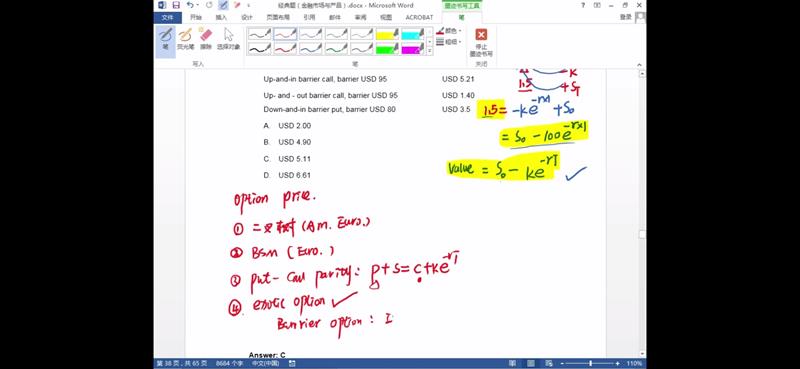 经典题（金融市场与产品）.docx - Microsoft Word
墨迹书写工具
文件
开始
插入
设计
页面布局
引用
邮件
审阅
视图
ACROBAT
笔
登录
笔
荧光笔
擦除
选择对象
颜色
粗细
停止
墨迹书写
写入
笔
关闭
K
1.5
+ST
Up-and-in barrier call, barrier USD 95 USD 5.21
Up- and - out barrier call, barrier USD 95 USD 1.40
Down-and-in barrier put, barrier USD 80 USD 3.5
1.5 = -ke^-rx1 + S0
= S0 - 100e^-rx1
Value = S0 - ke^-rT
A. USD 2.00
B. USD 4.90
C. USD 5.11
D. USD 6.61
option price.
① 二叉树 (Am. Euro.)
② BSM (Euro.)
③ put-call parity: p+s=c+ke^-rT
④ exotic option ✓
Barrier option: I
Answer: C
第 38 页，共 65 页 8684 个字 中文(中国) 110%